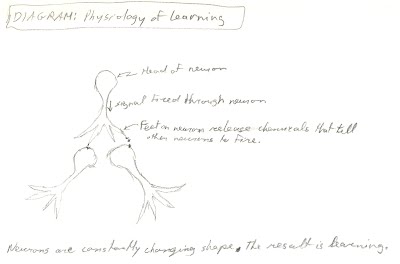 DIAGRAM: Physiology of Learning
Head of neuron
signal fired through neuron
Feet on neurons release chemicals that tell
other neurons to fire.
Neurons are constantly changing shape. The result is learning.